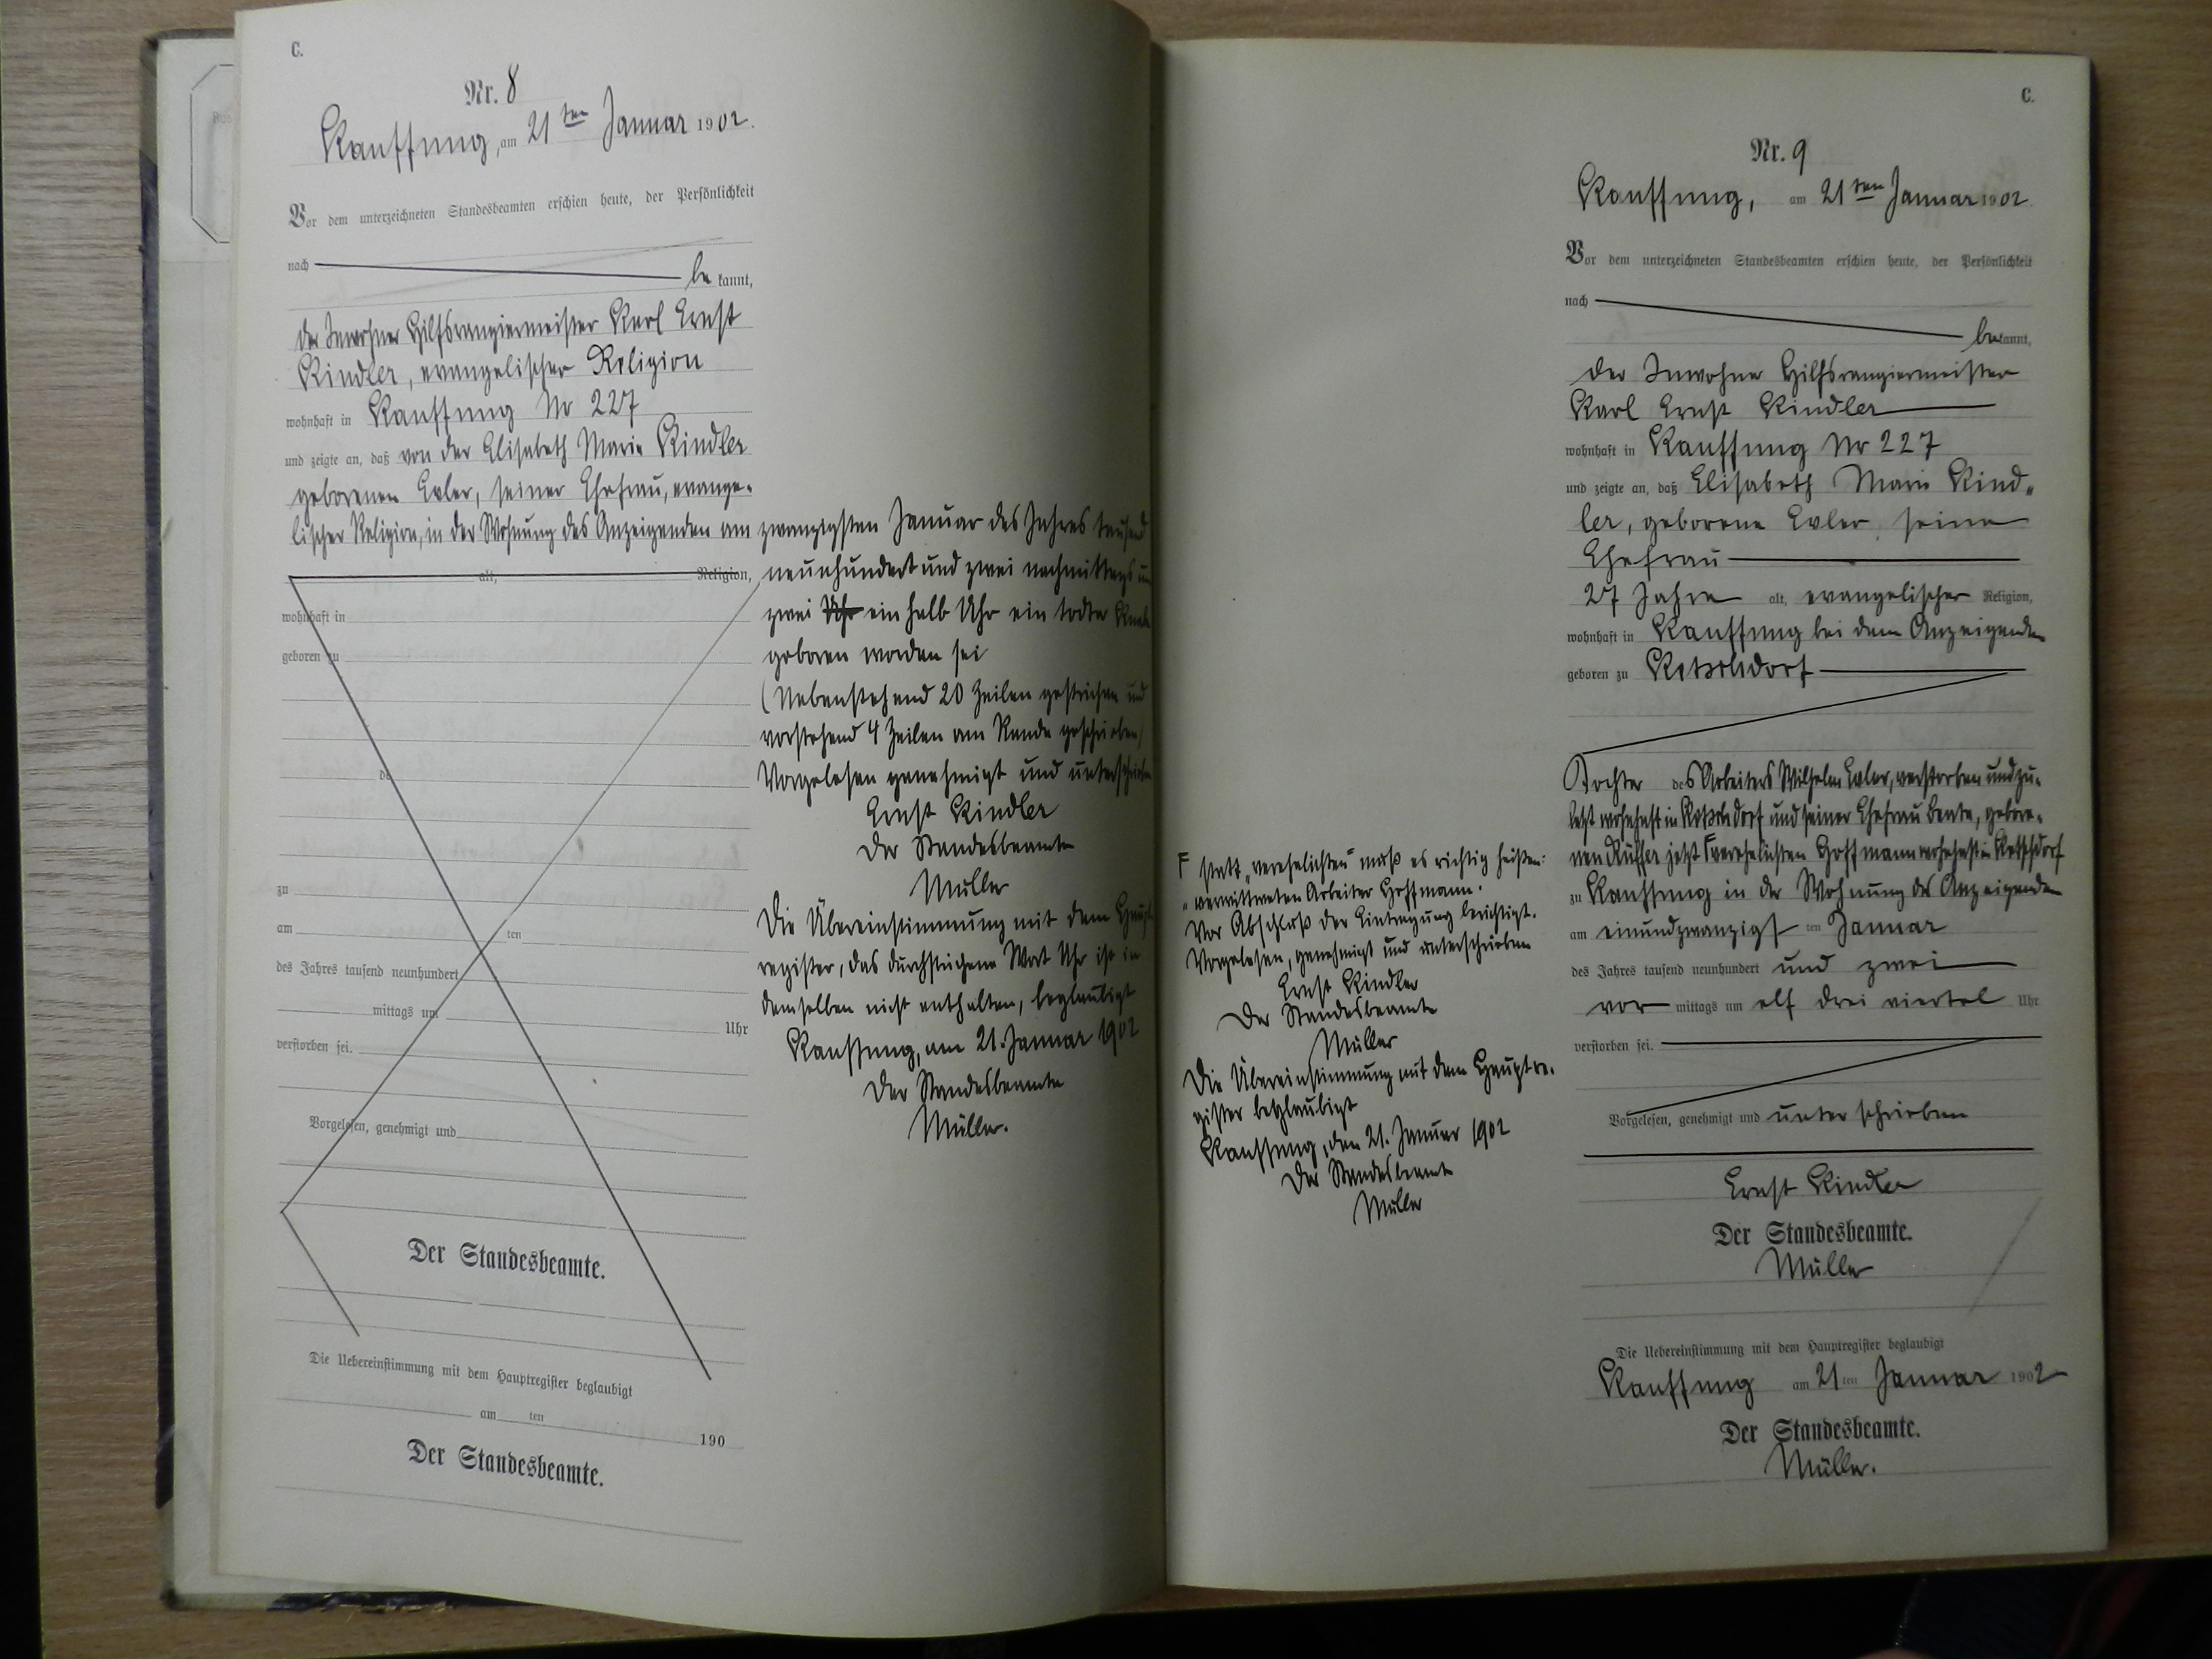 C.
Nr. 8
Kauffung, am 21ten Januar 1902.
Vor dem unterzeichneten Standesbeamten erschien heute, der Persönlichkeit
nach be kannt,
der Inwohner Hilfsrangiermeister Karl Ernst
Kindler, evangelischer Religion
wohnhaft in Kauffung No 227
und zeigte an, daß von der Elisabeth Marie Kindler
geborenen Exler, seiner Ehefrau, evange-
lischer Religion, in der Wohnung des Anzeigenden am
alt, Religion,
wohnhaft in
geboren zu
de
zu
am ten
des Jahres tausend neunhundert
mittags um Uhr
verstorben sei.
Vorgelesen, genehmigt und
Der Standesbeamte.
Die Uebereinstimmung mit dem Hauptregister beglaubigt
am ten 190
Der Standesbeamte.
zwanzigsten Januar des Jahres tausend
neunhundert und zwei nachmittags um
zwei Uhr ein halb Uhr ein todter Knabe
geboren worden sei
(Nebenstehend 20 Zeilen gestrichen und
vorstehend 4 Zeilen am Rande geschrieben)
Vorgelesen genehmigt und unterschrieben
Ernst Kindler
Der Standesbeamte
Müller
Die Übereinstimmung mit dem Haupt
register, das durchstrichene Wort Uhr ist in
demselben nicht enthalten, beglaubigt
Kauffung, am 21. Januar 1902
Der Standesbeamte
Müller.
C.
Nr. 9
Kauffung, am 21ten Januar 1902.
Vor dem unterzeichneten Standesbeamten erschien heute, der Persönlichkeit
nach
be kannt,
der Inwohner Hilfsrangiermeister
Karl Ernst Kindler
wohnhaft in Kauffung No 227
und zeigte an, daß Elisabeth Marie Kind-
ler, geborene Exler, seine
Ehefrau
27 Jahre alt, evangelischer Religion,
wohnhaft in Kauffung bei dem Anzeigenden
geboren zu
Tochter des Arbeiters Wilhelm Exler, verstorben und zu-
letzt wohnhaft in und seiner Ehefrau Beate, gebore-
nen Rüffer jetzt F verehelichten Hoffmann wohnhaft in Ketschdorf
zu Kauffung in der Wohnung des Anzeigenden
am einundzwanzigsten Januar
des Jahres tausend neunhundert und zwei
vor mittags um elf drei viertel Uhr
verstorben sei.
Vorgelesen, genehmigt und unterschrieben
Ernst Kindler
Der Standesbeamte.
Müller
Die Uebereinstimmung mit dem Hauptregister beglaubigt
Kauffung am 21ten Januar 1902
Der Standesbeamte.
Müller.
F statt „verehelichten" muß es richtig heißen:
„verwittweten Arbeiter Hoffmann.
Vor Abschluß der Eintragung berichtigt.
Vorgelesen, genehmigt und unterschrieben
Ernst Kindler
Der Standesbeamte
Müller
Die Übereinstimmung mit dem Hauptre-
gister beglaubigt
Kauffung, den 21. Januar 1902
Der Standesbeamte
Müller